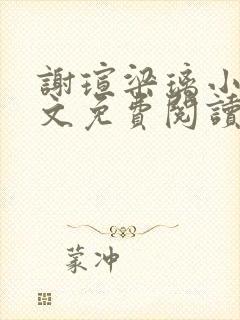 謝瑄梁璃小
文免費閱讀
蒙冲